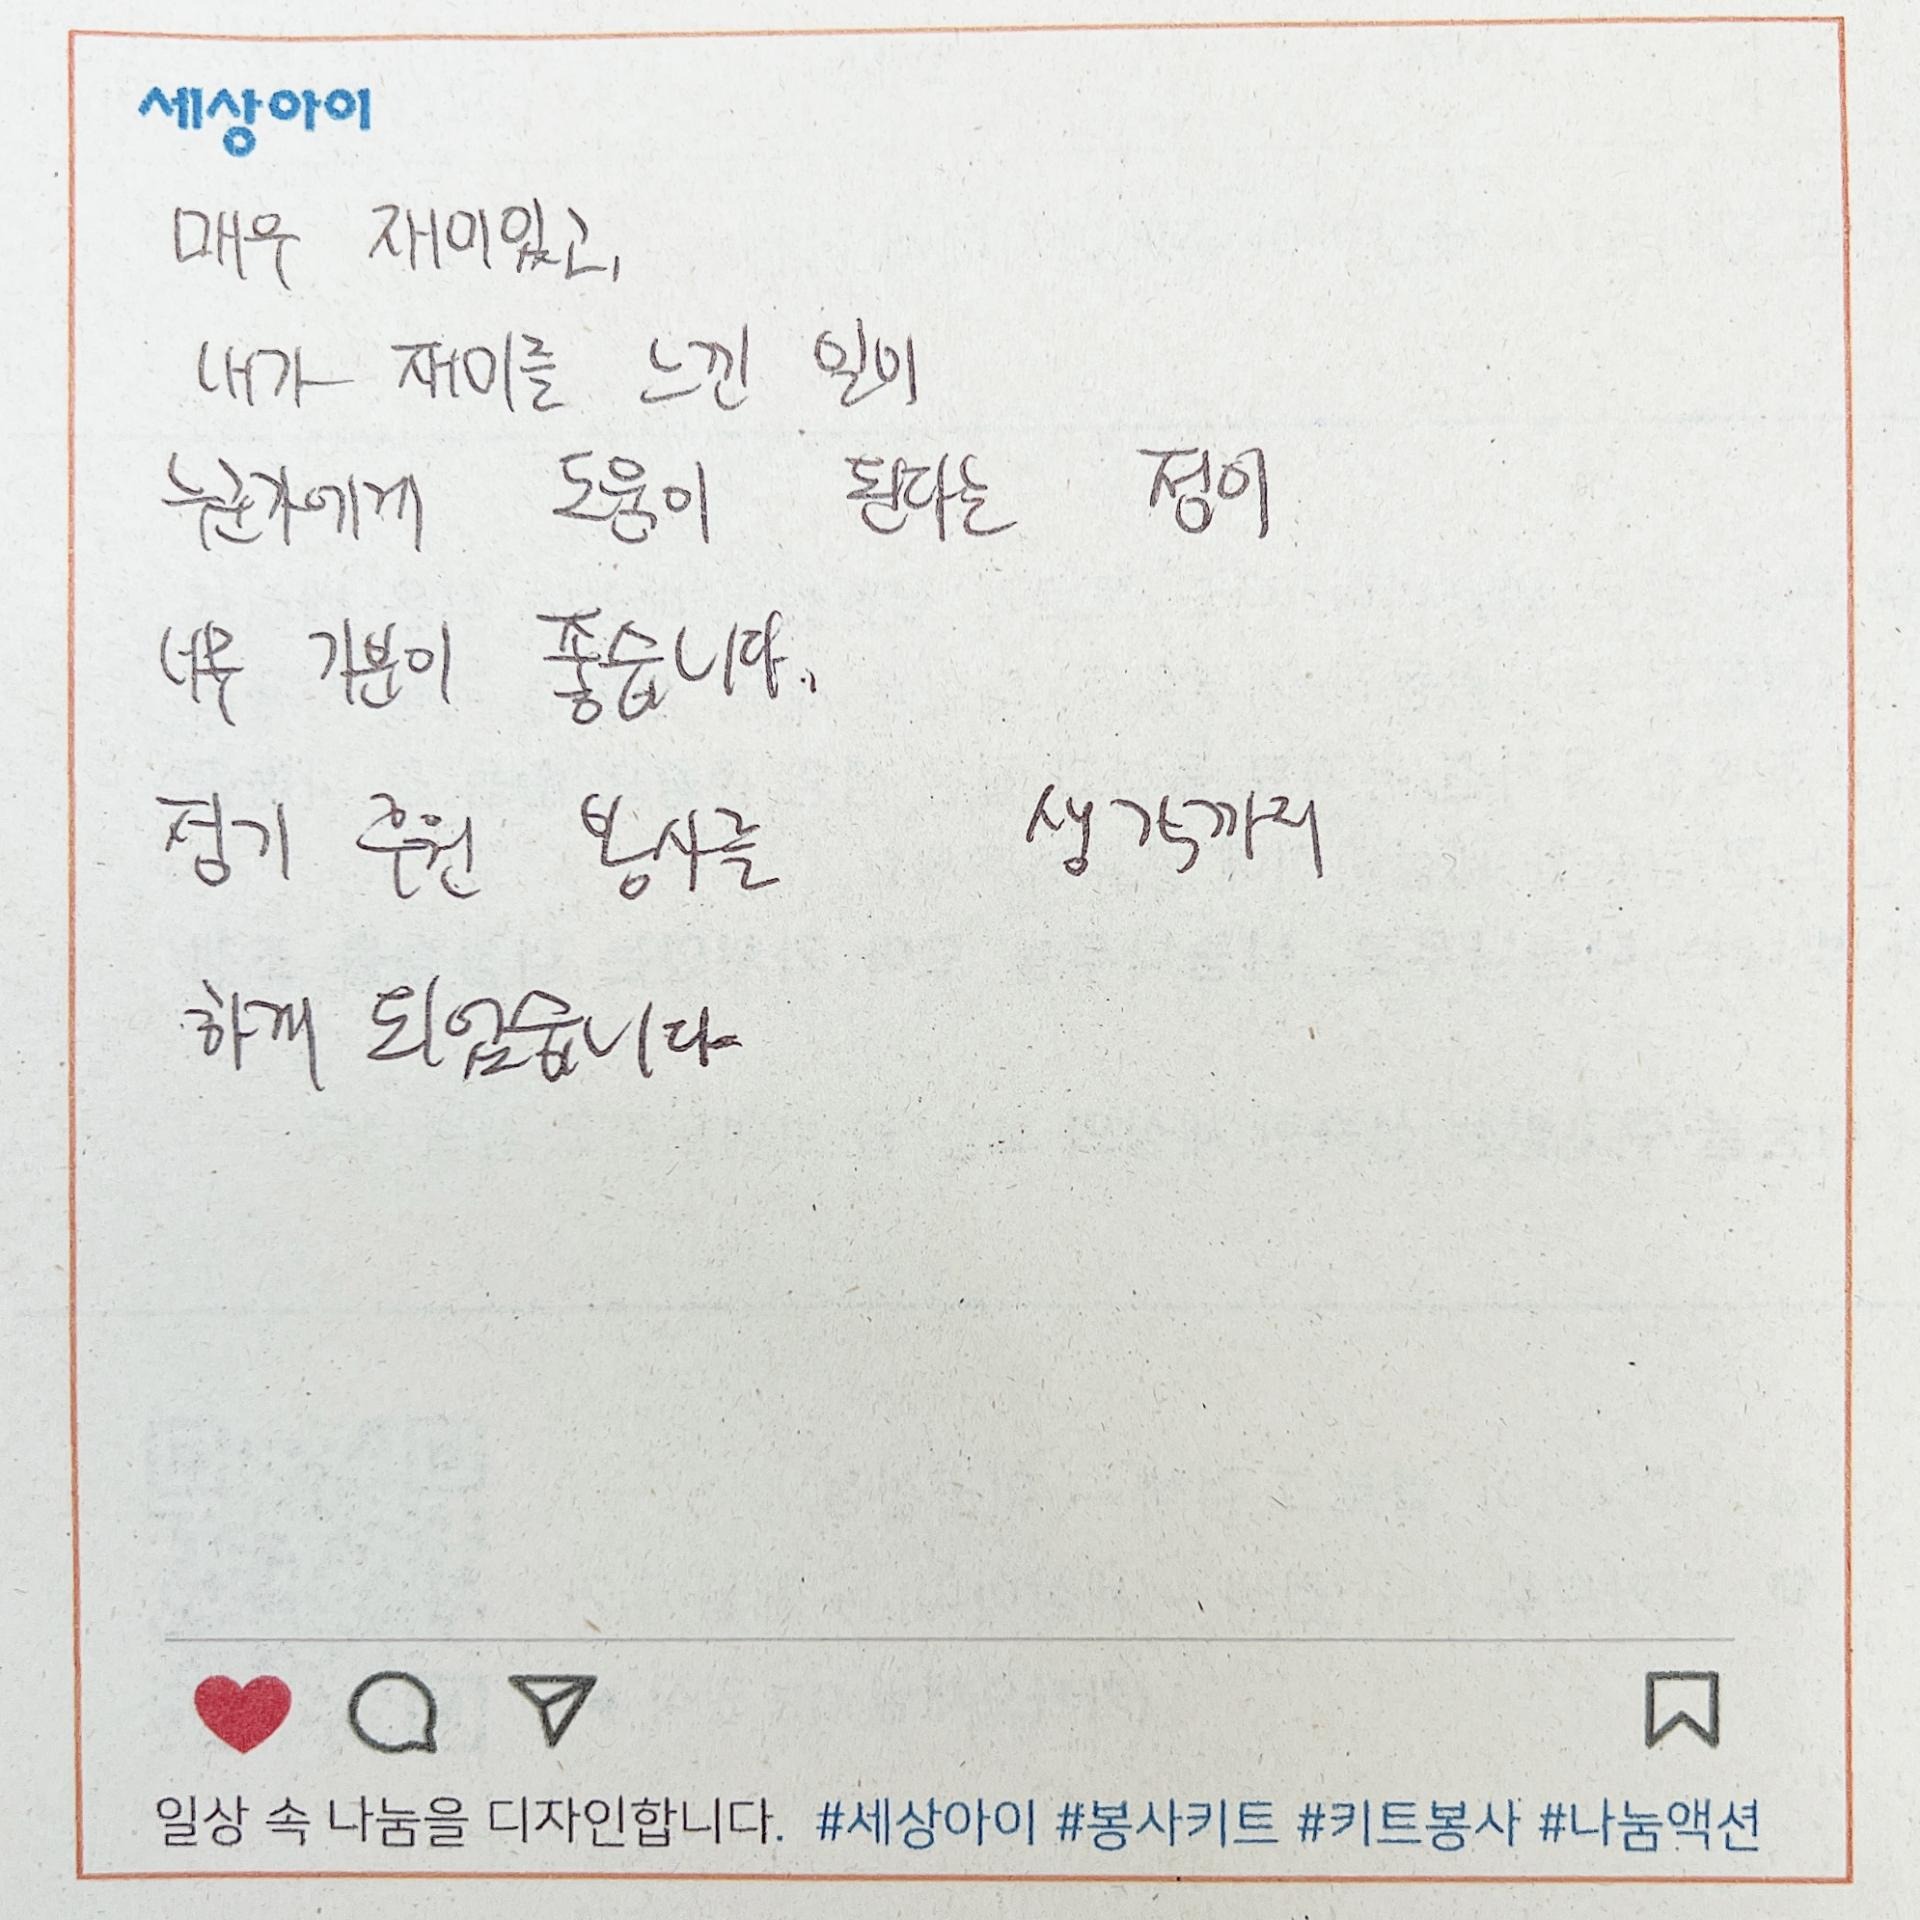 세상아이
매우 재미있고,
내가 재미를 느낀 일이
누군가에게 도움이 된다는 점이
너무 기분이 좋습니다.
정기 후원 봉사를 생각까지
하게 되었습니다.
일상 속 나눔을 디자인합니다. #세상아이 #봉사키트 #키트봉사 #나눔액션